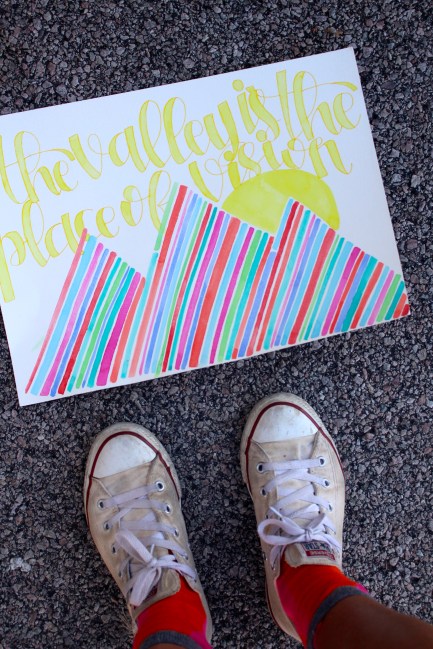 the valley is the
place of vision